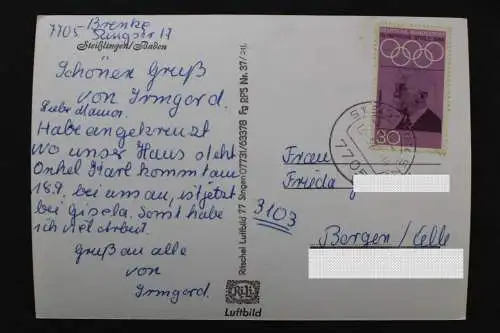 7705 Brenke
Singser 17
Steißlingen/Baden
Schönen Gruß
von Irmgard.
Liebe Mamor.
Habe angekreuzt
wo unser Haus steht
Onkel Karl kommt am
18.9. bei uns an, ist jetzt
bei Gisela. Sonst habe
ich viel Arbeit.
Gruß an alle
von
Irmgard.
Ritschel Luftbild 77 Singen 07731/63378 Fg RPS Nr. 37/
Luftbild
30
7705
Frau
Frieda
3103
Bergen/Celle